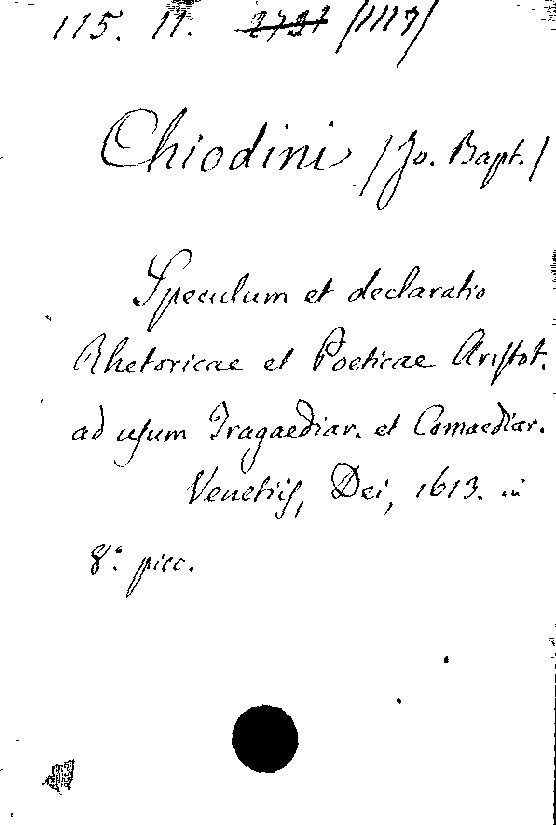 115. 11. 2727 /1117/
Chiodini /Jo. Bapt./
Speculum et declaratio
Rhetoricae et Poeticae Aristot.
ad usum Tragaediar. et Comaediar.
Venetiis, Dei, 1613. in
8.° picc.